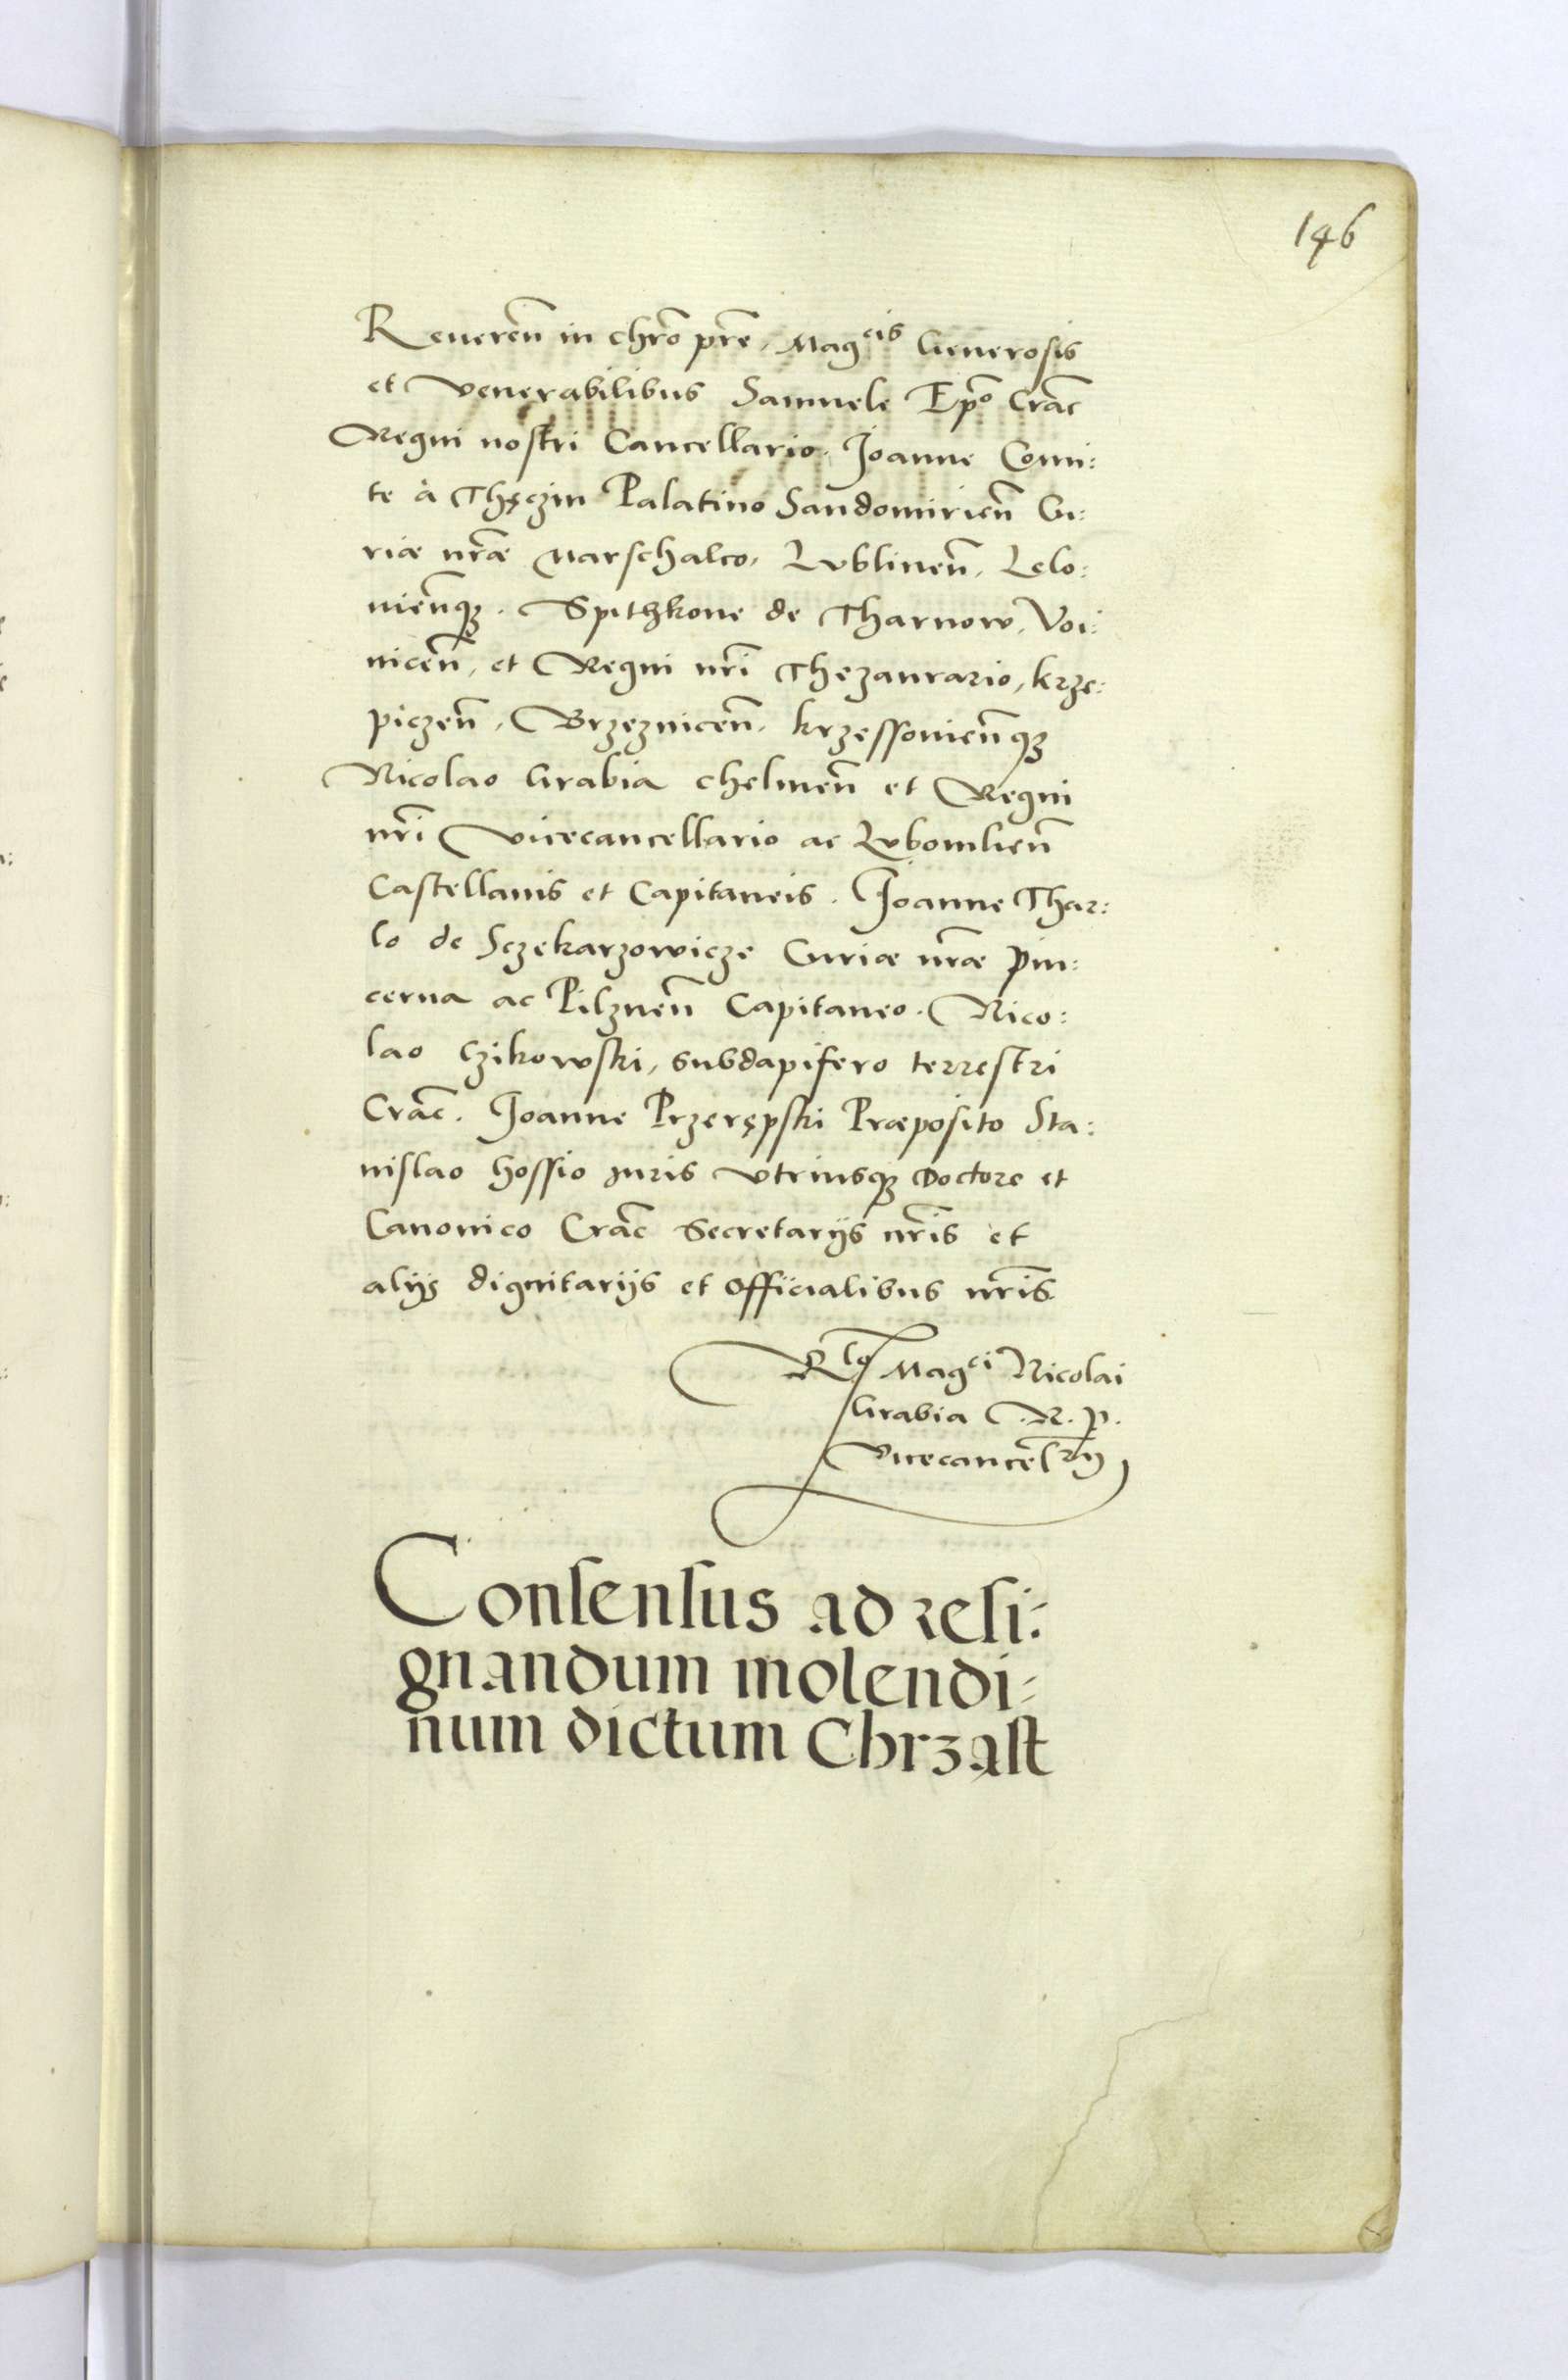 146
Reueren̄ in chrō pr̄e, Mag^cis Generosis
et Venerabilibus Samuele Ep̄o Crac̄
Regni nostri Cancellario. Joanne Comi:
te à Thęczin Palatino Sandomirien̄ Cu:
riæ nr̄æ Marschalco, Lublinen̄, Lelo:
uien̄q₃. Spithkone de Tharnow, Voi:
nicen̄, et Regni nr̄i Thezaurario, krze:
piczen̄, Brzeznicen̄, krzessouien̄q₃
Nicolao Grabia chelmen̄ et Regni
nr̄i Vicecancellario ac Lubomlien̄
Castellanis et Capitaneis. Joanne Thar:
lo de Sczekarzowicze Curiæ nr̄æ pin:
cerna ac Pilznen̄ Capitaneo. Nico:
lao Czikowski, subdapifero terrestri
Crac̄. Joanne Przerępski Præposito Sta:
nislao hossio Juris Vtriusq₃ Doctore et
Canonico Crac̄ Secretarijs nr̄is et
alijs dignitarijs et Officialibus nr̄is
R^lo Mag^ci Nicolai
Grabia .R.P.
Vicecancell^rij
Consensus ad resi:
gnandum molendi:
num dictum Chrząst